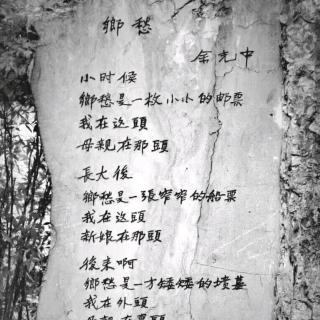 鄉愁
余光中
小时候
鄉愁是一枚小小的邮票
我在这頭
母親在那頭
長大後
鄉愁是一張窄窄的船票
我在这頭
新娘在那頭
後来啊
鄉愁是一方矮矮的墳墓
我在外頭
母親在裏頭